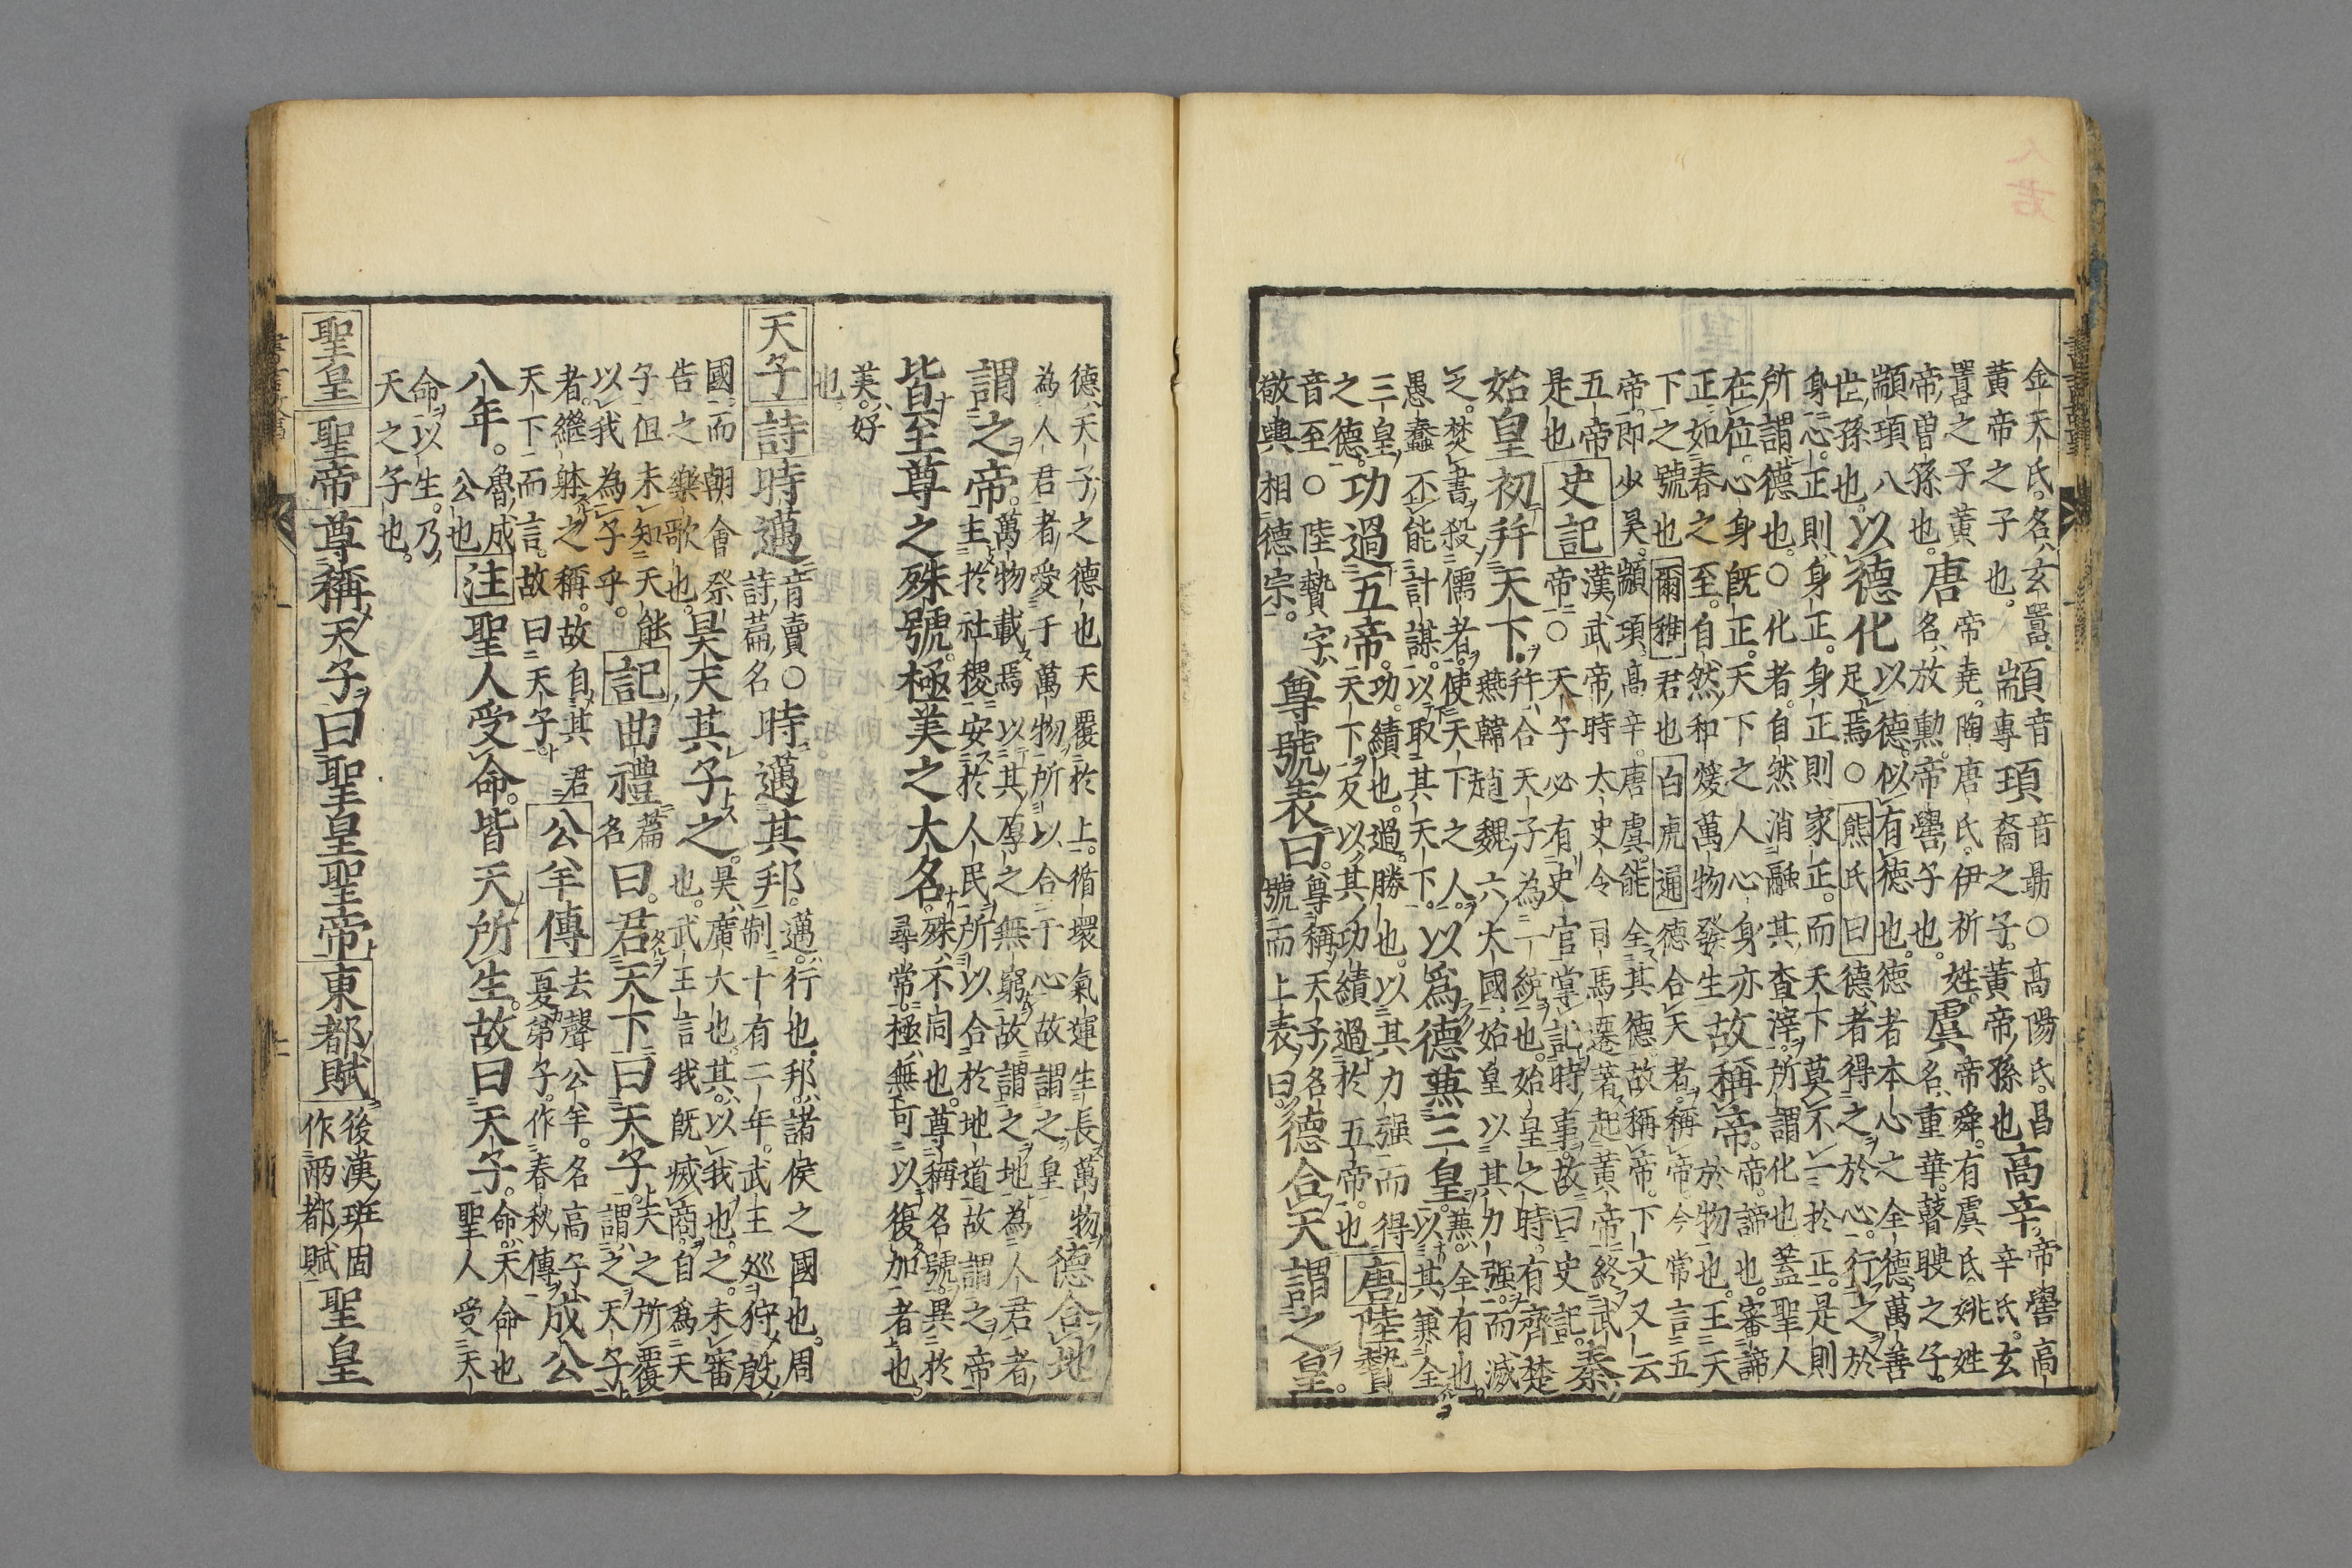 金天氏。名玄囂、
黃帝之子也。
顓
音
專
頊
音勗○高陽氏。昌
裔之子。黃帝孫也
高辛
帝嚳高
辛氏。玄
囂之子黃
帝曾孫也。
唐
帝堯。陶唐氏。伊祈
名放勳。帝嚳子也。
姓。
虞
帝舜。有虞氏姚姓
名重華。瞽聘之子。
顓頊八
世孫也。
以德化
以德似有德也。德者本心之全德。萬善
足焉○熊氏曰德者得之於心。行之於
身心。正則身正。身正則家正。而天下莫不一於正。是則
所謂德也。○化者。自然消融其查滓。所謂化也蓋聖人
在位心身既正。天下之人心身亦
正如春之至。自然和煖萬物發生
故稱帝。
帝諦也。審諦
於物也。王天
下之號也爾雅君也白虎通德合天者。稱帝今常言五
帝。即少昊。顓頊。高辛。唐虞。能全其德故稱帝。下文又云
五帝
是也
史記
漢武帝時太史令司馬遷著起黃帝終武
帝○天子必有史官掌記時事。故曰史記。
秦
始皇初幷天下。
幷合天子為一統也。始皇之時。有齊楚
燕韓趙魏六大國始皇以其力强。而滅
之。焚書殺儒者。使天下之人。
愚蠢不能計謀。以取其天下。
以爲德兼三皇。
兼。全有也。
以其兼全
三皇
之德。
功過五帝。
功。績也。過。勝也。以其力强而得
天下友以其功績過於五帝。也
唐陸贄
音至○陸贄字
敬輿相德宗。
尊號表曰。
尊稱天子名
號而上表曰。
德合天謂之皇。
德、天子之德也天覆於上。循環氣運生長萬物
為人君者愛于萬物所以合于心故謂之皇
德合地
謂之帝。
萬物載焉以其厚之無窮故謂之地為人君者
主於社稷安於人民所以合於地道故謂之帝
皆至尊之殊號。極美之大名。
殊。不同也。尊稱名號。異於
尋常極無可以復加者也
美。好
也。
天子
詩時邁
音賣○
詩篇名
時邁其邦。
邁。行也。邦。諸侯之國也。周
制十有二年。武王巡狩殷
國。而朝會祭
告之樂歌也。
昊天其子之。
昊。廣大也。其。以我也。之。未審
也。武王言我既滅商。自爲天
子但未知天能
以我為子乎。
記曲禮
篇
名
曰。君天下曰天子。
天之所覆
謂之天子
者。繼躰之稱。故自其君
天下而言。故曰天子。
公羊傳
去聲公羊。名高子
夏弟子。作春秋傳
成公
八年。
魯成
公也
注聖人受命。皆天所生。故曰天子。
命。天命也
聖人受天
命以生。乃
天之子也。
聖皇
聖帝尊稱天子曰聖皇聖帝東都賦
後漢班固
作兩都賦
聖皇